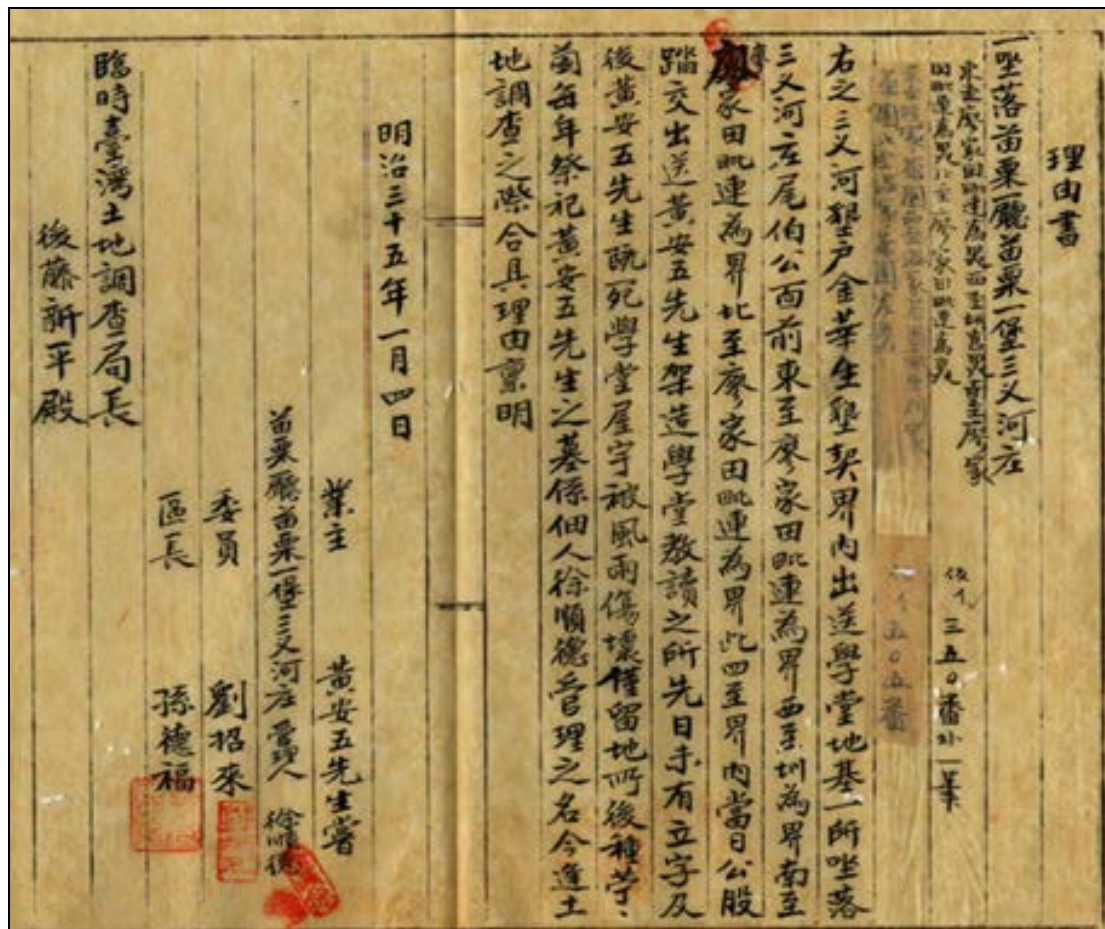 理由書
一坐落苗栗一廳苗栗一堡三义河庄
東至廖家田毗連為界西至圳為界南至廖家
田毗連為界北至廖家田毗連為界
後イ 三五〇番外一筆
五〇五番
右之三义河墾戶金華生墾契界內出送學堂地基一所坐落
三义河庄尾伯公面前東至廖家田毗連為界西至圳為界南至
廖家田毗連為界北至廖家田毗連為界此四至界內當日公股
踏交出送黃安五先生架造學堂教讀之所先日未有立字及
後黃安五先生既死學堂屋宇被風雨傷壞僅留地所後種
蔔每年祭祀黃安五先生之墓係佃人徐順德管理之名今逢土
地調查之際合具理由稟明
明治三十五年一月四日
業主 黃安五先生嘗
苗栗廳苗栗一堡三义河庄管理人 徐順德
委員 劉招來
區長 孫德福
臨時臺灣土地調查局長
後藤新平殿